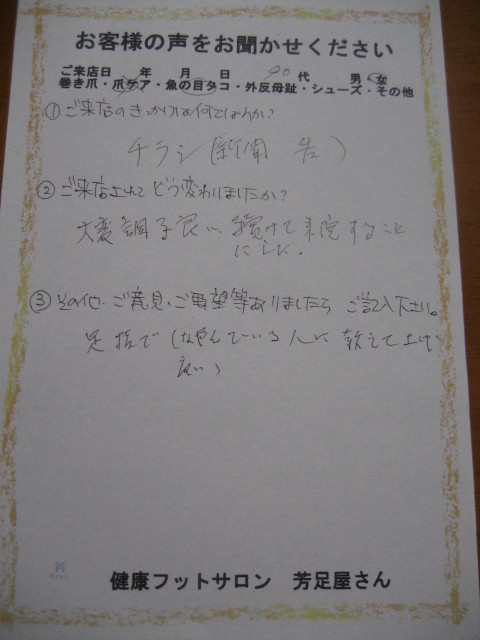 お客様の声をお聞かせください
ご来店日 年 月 日 90代 男・女
巻き爪・爪ケア・魚の目タコ・外反母趾・シューズ・その他
①ご来店のきっかけは何でしょうか?
チラシ(新聞 告)
②ご来店されてどう変わりましたか?
大変調子良い、続けて来院すること
にした。
③その他・ご意見・ご要望等ありましたら ご記入下さい。
足指で悩んでいる人に教えて上げ
良い
健康フットサロン 芳足屋さん